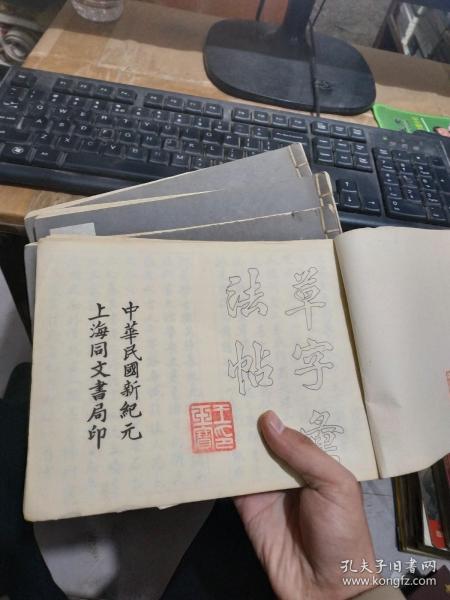 草字彙
法帖
中華民國新紀元
上海同文書局印
孔夫子旧书网
www.kongfz.com